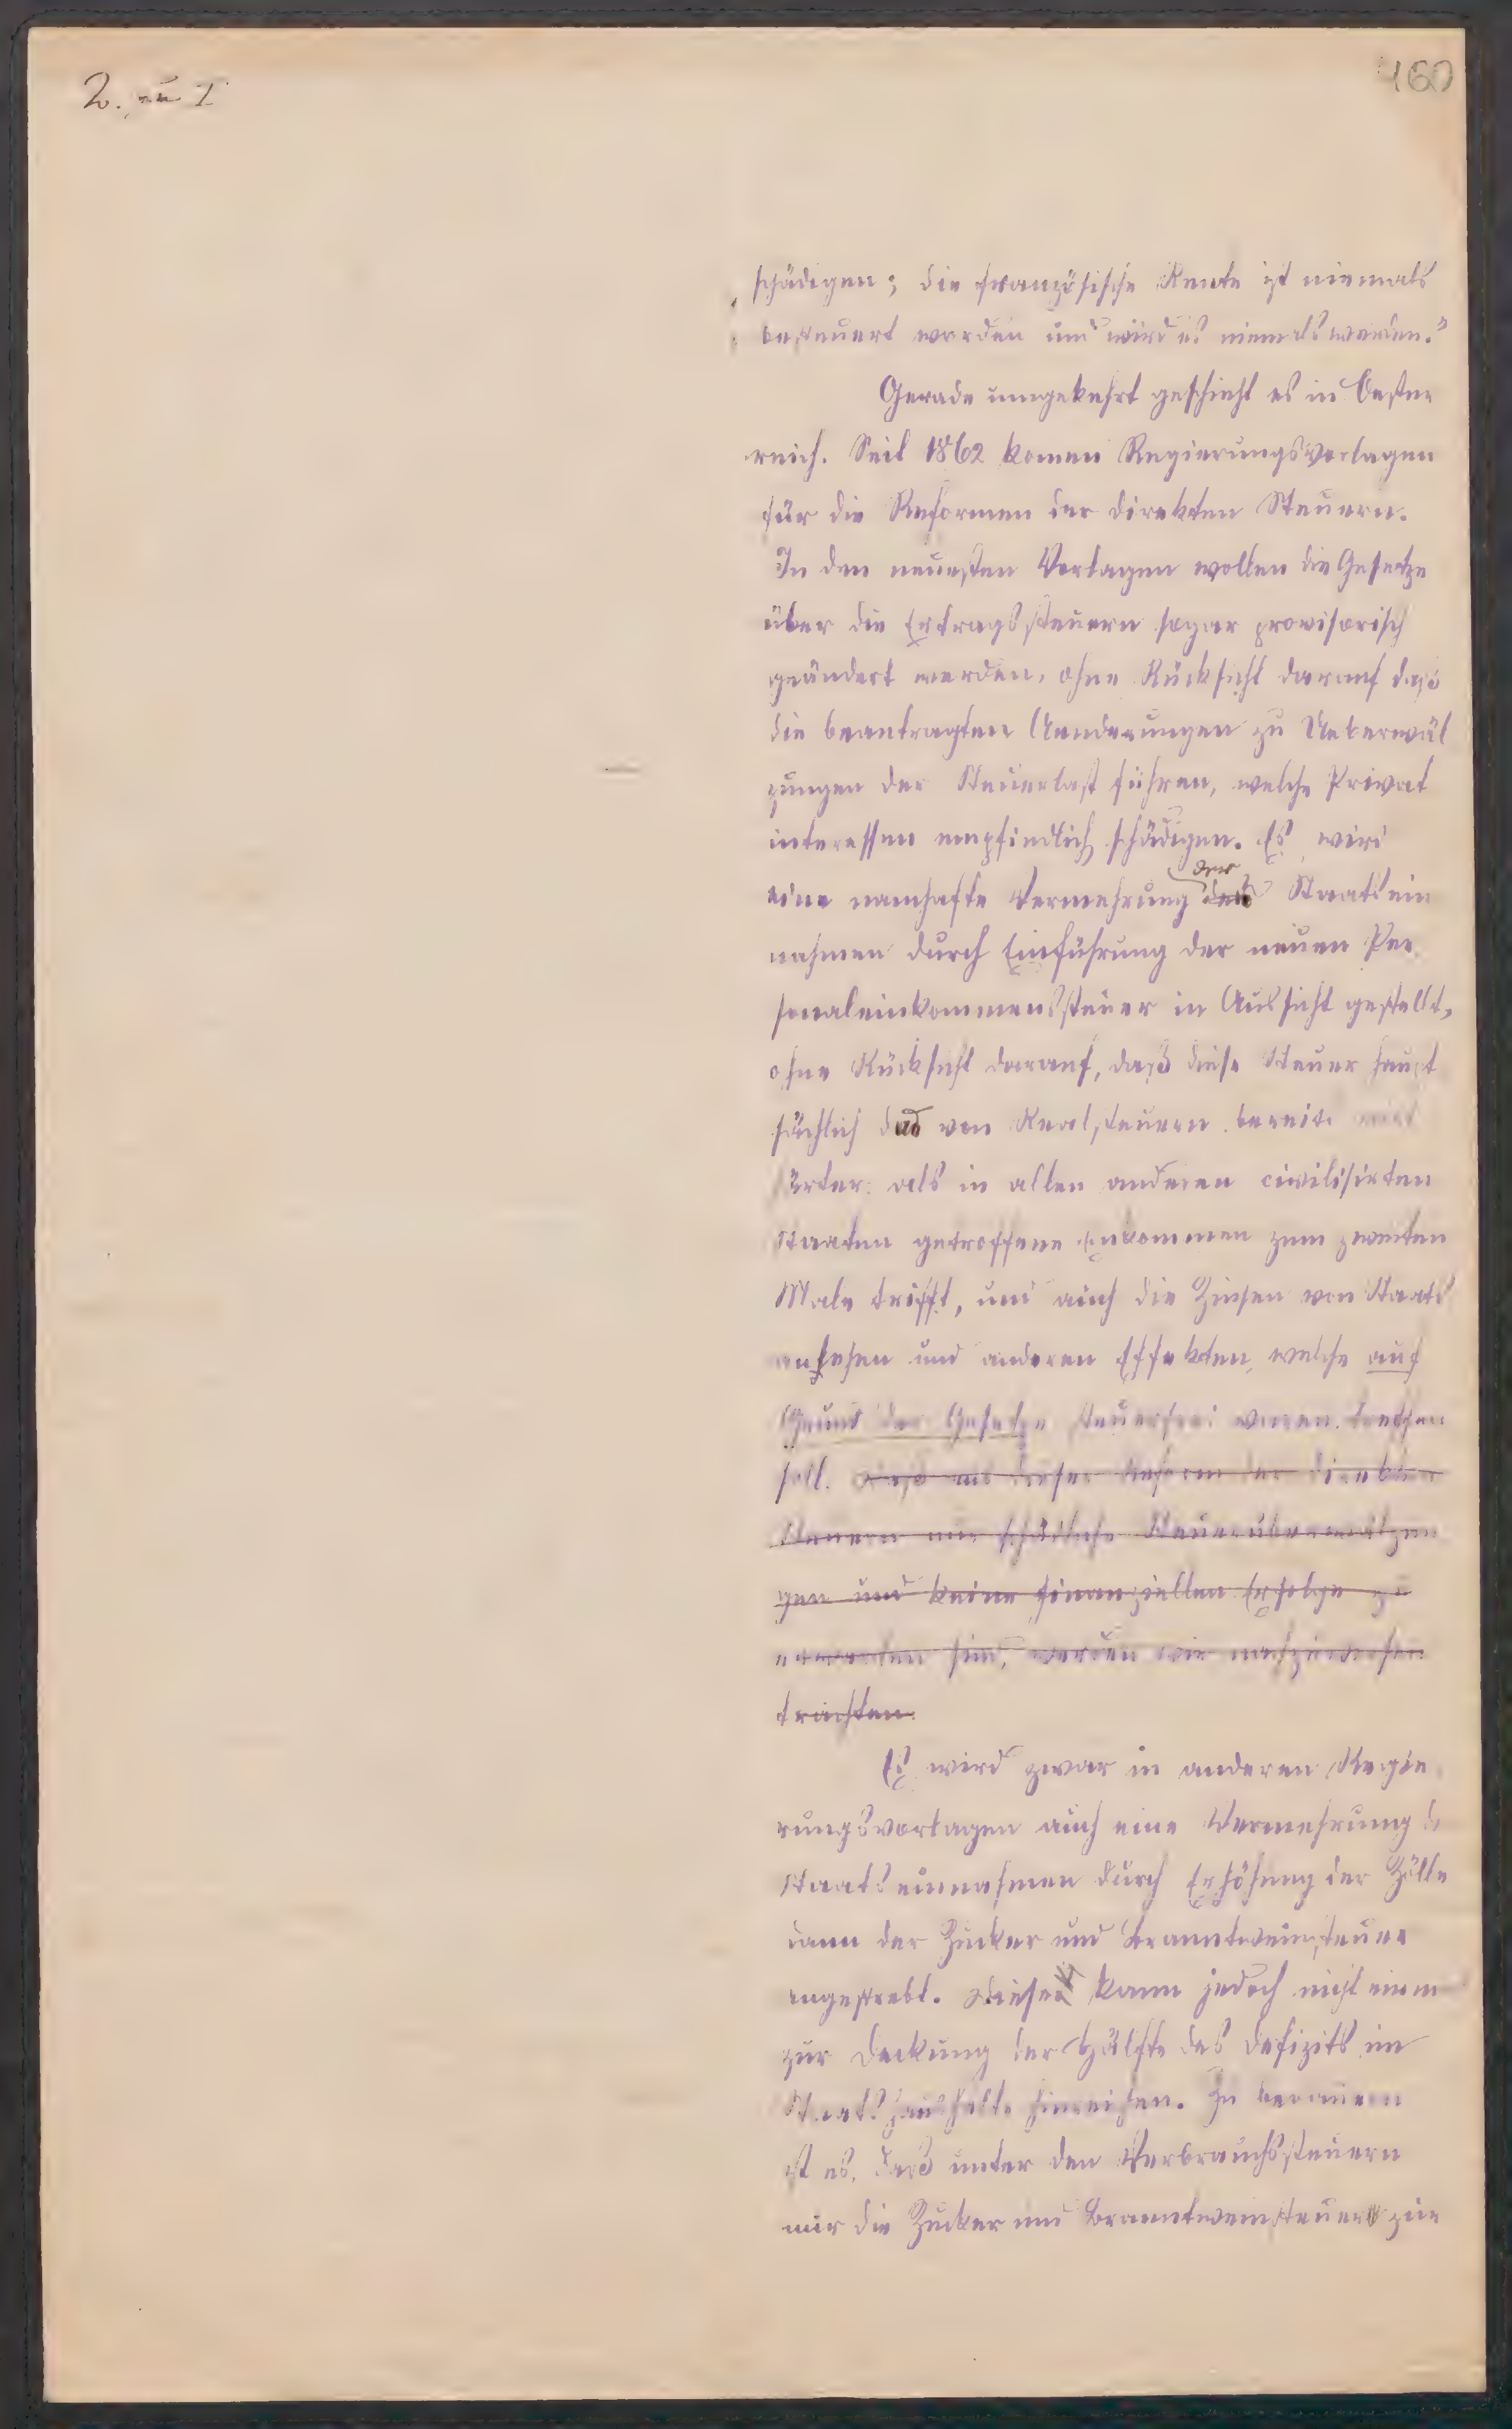 2. zu I
460
schädigen; die französische Rente ist niemals
besteuert worden und wird es niemals werden."
Gerade umgekehrt geschieht es in Oester
reich. Seit 1862 komen Regierungsvorlagen
für die Reformen der direkten Steuern.
In den neuesten Vorlagen wollen die Gesetze
über die Ertragssteuern sogar provisorisch
geändert werden, ohne Rücksicht darauf daß
die beantragten Aenderungen zu Ueberwäl
zungen der Steuerlast führen, welche Privat
interessen empfindlich schädigen. Es wird
der
eine namhafte Vermehrung des Staatsein
nahmen durch Einführung der neuen Per
sonaleinkommenssteuer in Aussicht gestellt,
ohne Rücksicht darauf, daß diese Steuer haupt
sächlich das von Realsteuern bereits
härter als in allen anderen civilisirten
Staaten getroffene Einkommen zum zweiten
Male trifft, und auch die Zinsen von Staats
anlehen und anderen Effekten, welche auf
Grund der Gesetze steuerfrei waren, treffen
soll. Daß aus dieser Reform der direkten
Steuern nur schädliche Steuerüberwälzun
gen und keine finanziellen Erfolge zu
erwarten sind, werden wir nachzuweisen
trachten.
Es wird zwar in anderen Regie
rungsvorlagen auch eine Vermehrung d
Staatseinnahmen durch Erhöhung der Zölle
dann der Zucker und Branntweinsteuer
angestrebt. Diese kann jedoch nicht einm
zur Deckung der Hälfte des Defizits im
Staatshaushalte hinreichen. Zu bedauern
ist es, daß unter den Verbrauchssteuern
nur die Zucker und Branntweinsteuer zur